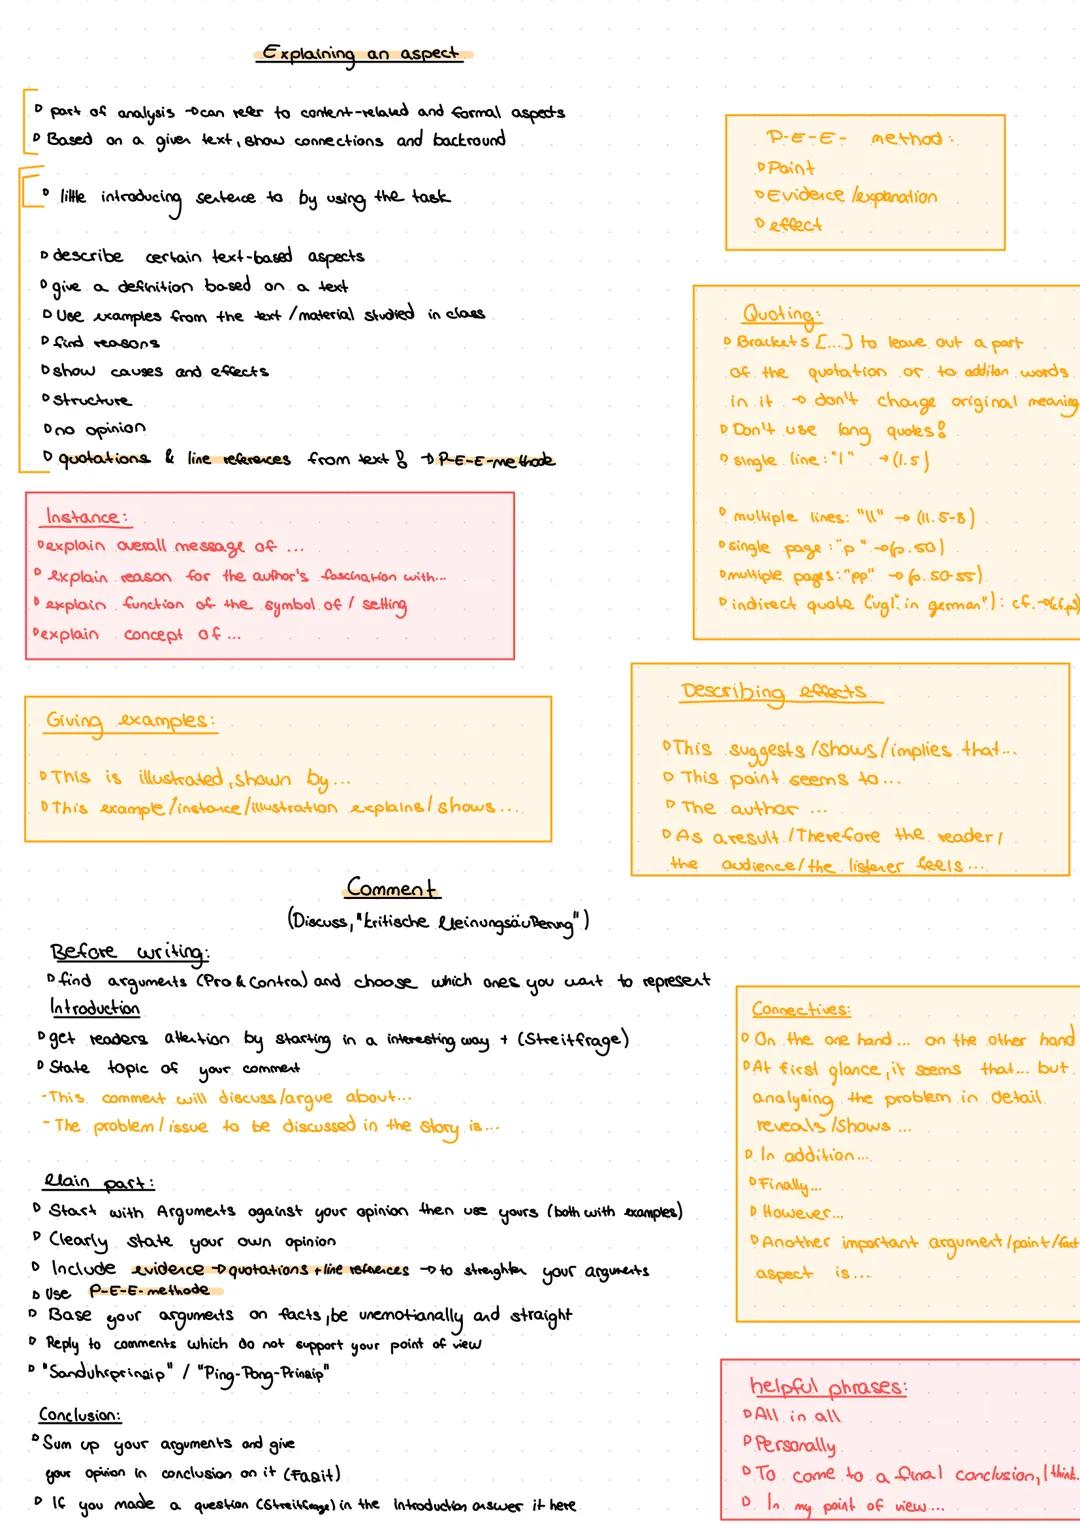 Explaining an aspect
▷ part of analysis → can refer to content-related and formal aspects
▷ Based on a given text, show connections and backround
▷ little introducing sentence to by using the task
▷ describe certain text-based aspects
▷ give a definition based on a text
▷ Use examples from the text / material studied in class
▷ find reasons
▷ show causes and effects
▷ structure
▷ no opinion
▷ quotations & line references from text! → P-E-E-methode
P-E-E- method:
▷ Point
▷ Evidence /explanation
▷ effect
Quoting:
▷ Brackets [...] to leave out a part
of the quotation or to addition words
in it → don't change original meaning
▷ Don't use long quotes!
▷ single line: "l" → (l.5)
▷ multiple lines: "ll" → (ll. 5-8)
▷ single page: "p" → (p.50)
▷ multiple pages: "pp" → (p. 50-55)
▷ indirect quote ("vgl." in german"): cf. →(cf.p5)
Instance:
▷ explain overall message of ...
▷ explain reason for the author's fascination with...
▷ explain function of the symbol of / setting
▷ explain concept of ...
Giving examples:
▷ This is illustrated, shown by ...
▷ This example/instance/illustration explains/ shows ...
Describing effects
▷ This suggests /shows/implies that...
▷ This point seems to...
▷ The author ...
▷ As a result /Therefore the reader/
the audience/the listener feels ...
Comment
(Discuss, "kritische Meinungsäußerung")
Before writing:
▷ find arguments (Pro & Contra) and choose which ones you want to represent
Introduction
▷ get readers attention by starting in a interesting way + (Streitfrage)
▷ State topic of your comment
- This comment will discuss/argue about...
- The problem / issue to be discussed in the story is...
Main part:
▷ Start with Arguments against your opinion then use yours (both with examples)
▷ Clearly state your own opinion
▷ Include evidence → quotations + line refences → to streghten your arguments
▷ Use P-E-E-methode
▷ Base your arguments on facts, be unemotianally and straight
▷ Reply to comments which do not support your point of view
▷ "Sanduhrprinzip" / "Ping-Pong-Prinzip"
Conclusion:
▷ Sum up your arguments and give
your opinion in conclusion on it (Fazit)
▷ If you made a question (Streitfrage) in the Introduction answer it here
Connectives:
▷ On the one hand ... on the other hand
▷ At first glance, it seems that... but
analysing the problem in detail
reveals /shows ...
▷ In addition...
▷ Finally...
▷ However...
▷ Another important argument/point/fact
aspect is...
helpful phrases:
▷ All in all
▷ Personally
▷ To come to a final conclusion, I think...
▷ In my point of view...